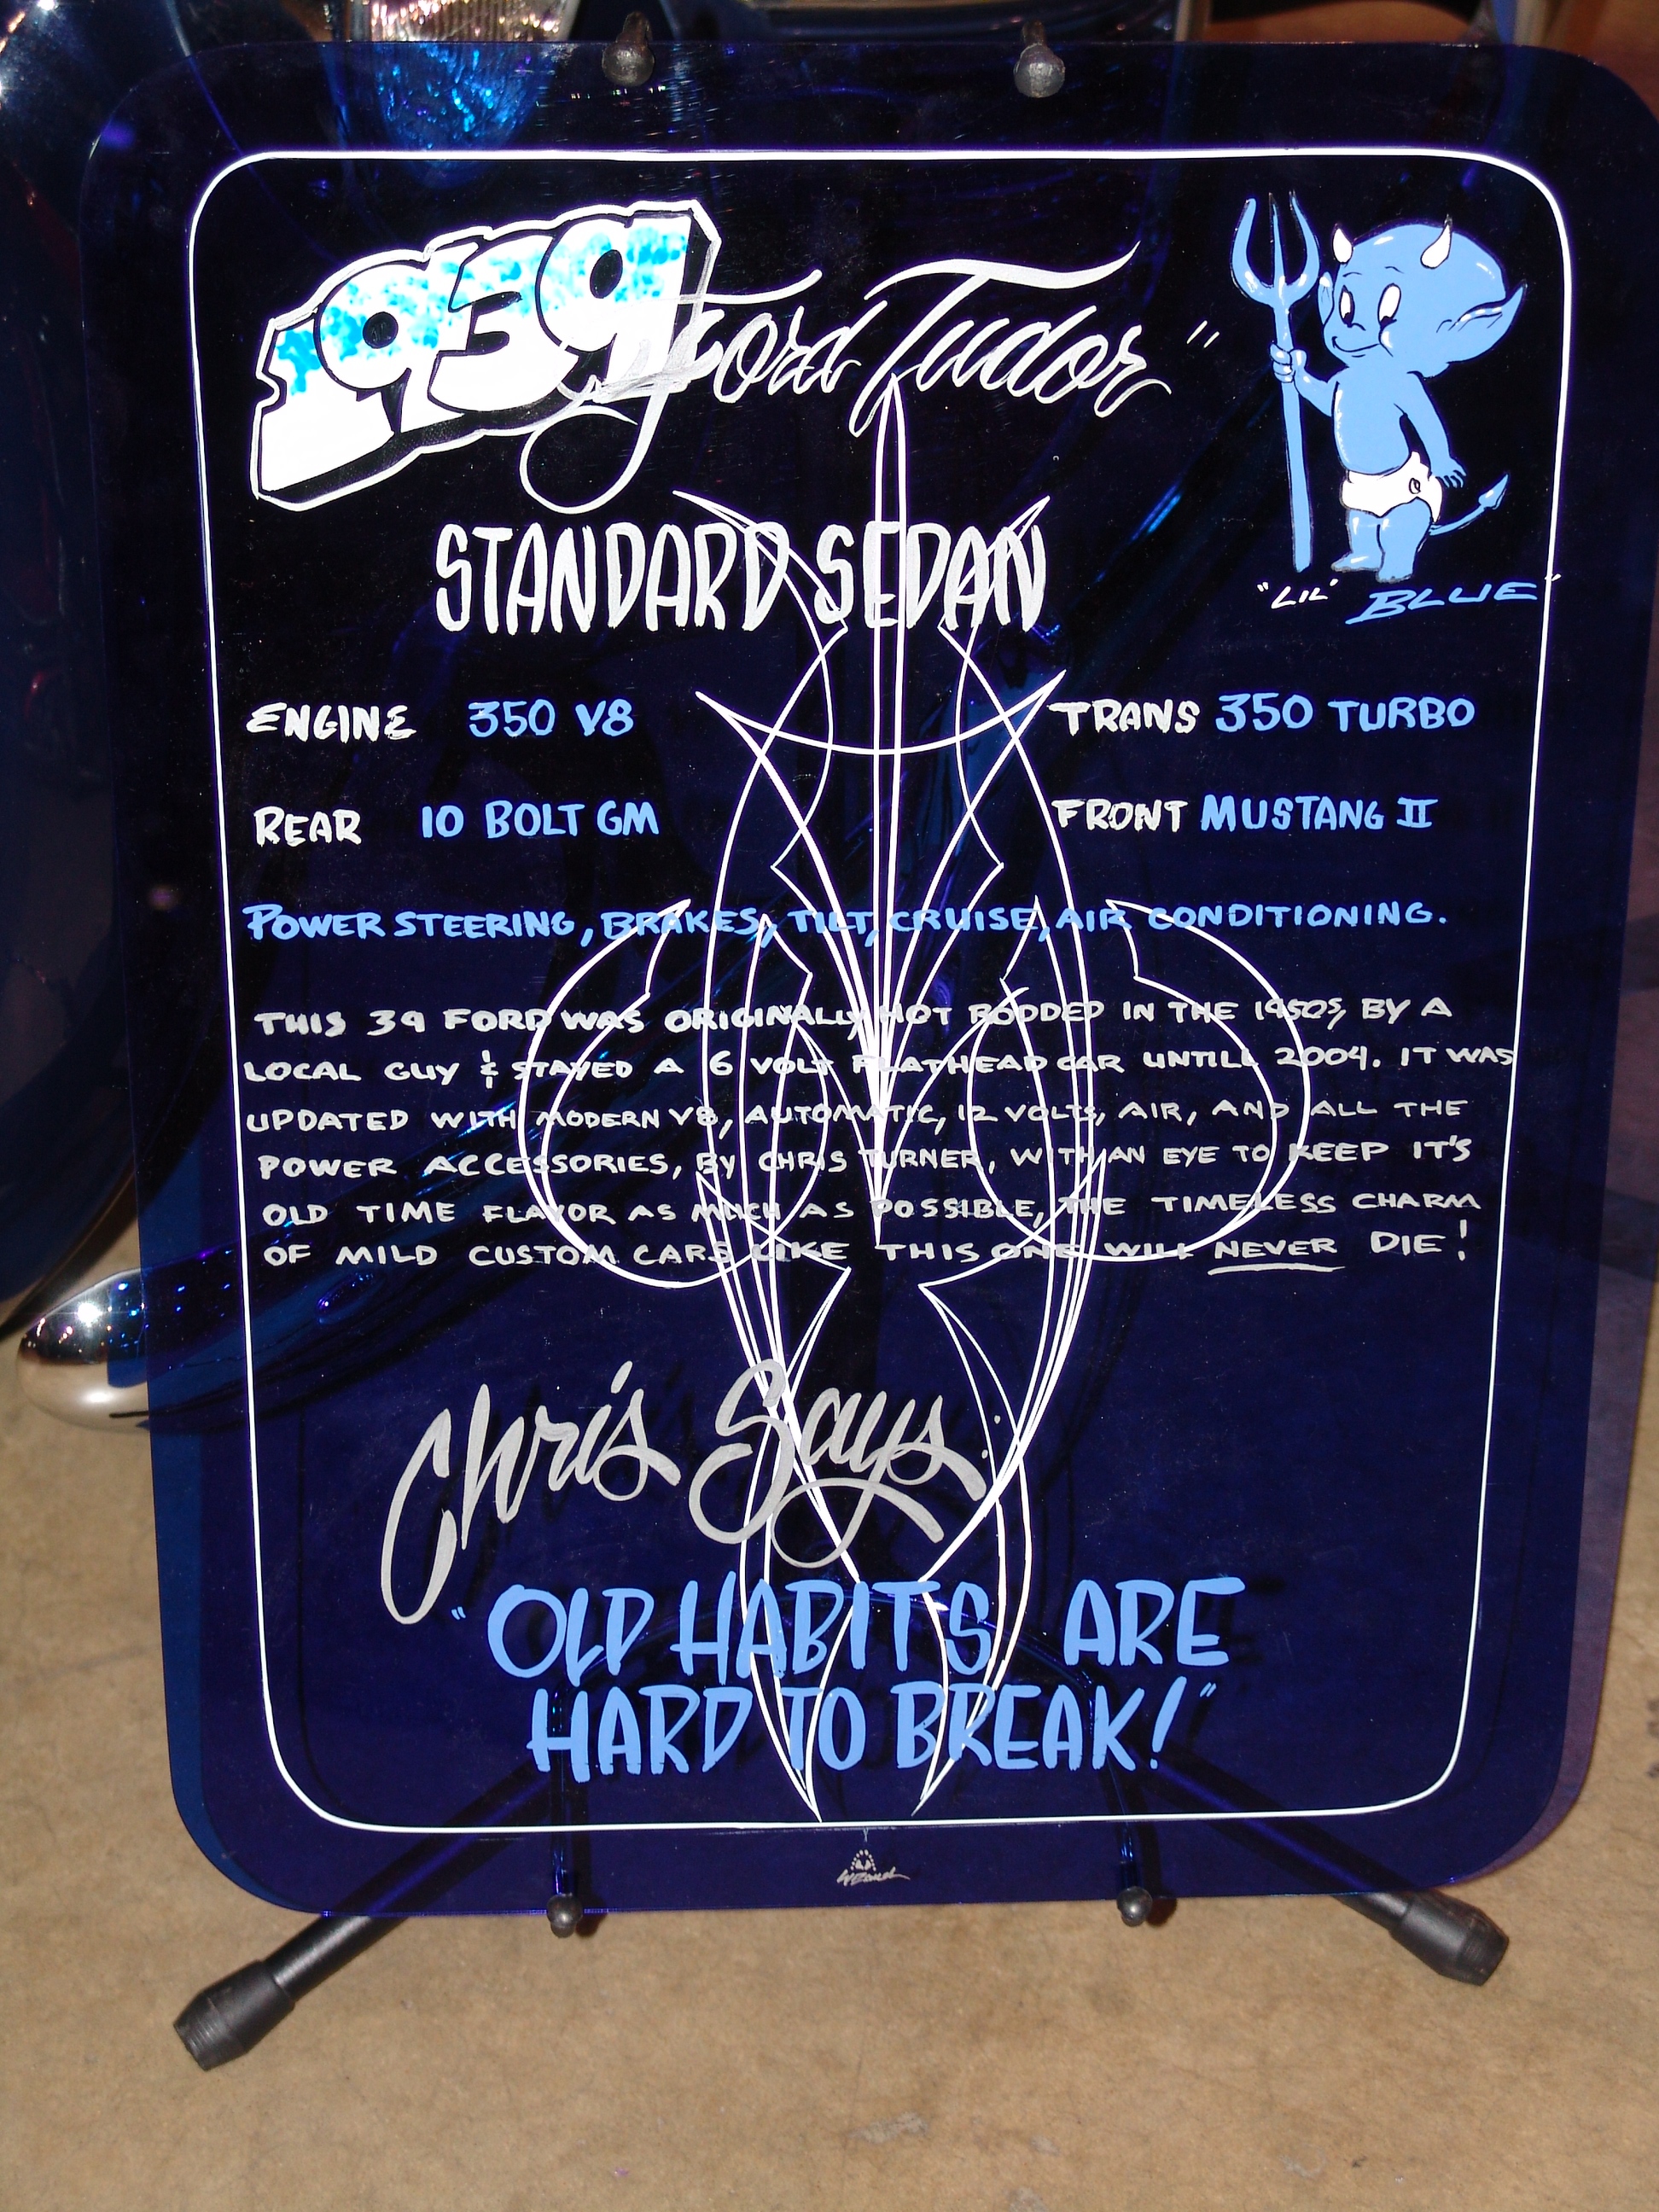 1939 Ford Tudor "
STANDARD SEDAN
"LIL' BLUE"
ENGINE 350 V8 TRANS 350 TURBO
REAR 10 BOLT GM FRONT MUSTANG II
POWER STEERING, BRAKES, TILT, CRUISE, AIR CONDITIONING.
THIS 39 FORD WAS ORIGINALLY HOT RODDED IN THE 1950S, BY A
LOCAL GUY & STAYED A 6 VOLT FLATHEAD CAR UNTILL 2004. IT WAS
UPDATED WITH MODERN V8, AUTOMATIC, 12 VOLTS, AIR, AND ALL THE
POWER ACCESSORIES, BY CHRIS TURNER, WITH AN EYE TO KEEP IT'S
OLD TIME FLAVOR AS MUCH AS POSSIBLE, THE TIMELESS CHARM
OF MILD CUSTOM CARS LIKE THIS ONE WILL NEVER DIE!
Chris Says:
"OLD HABITS ARE
HARD TO BREAK!"